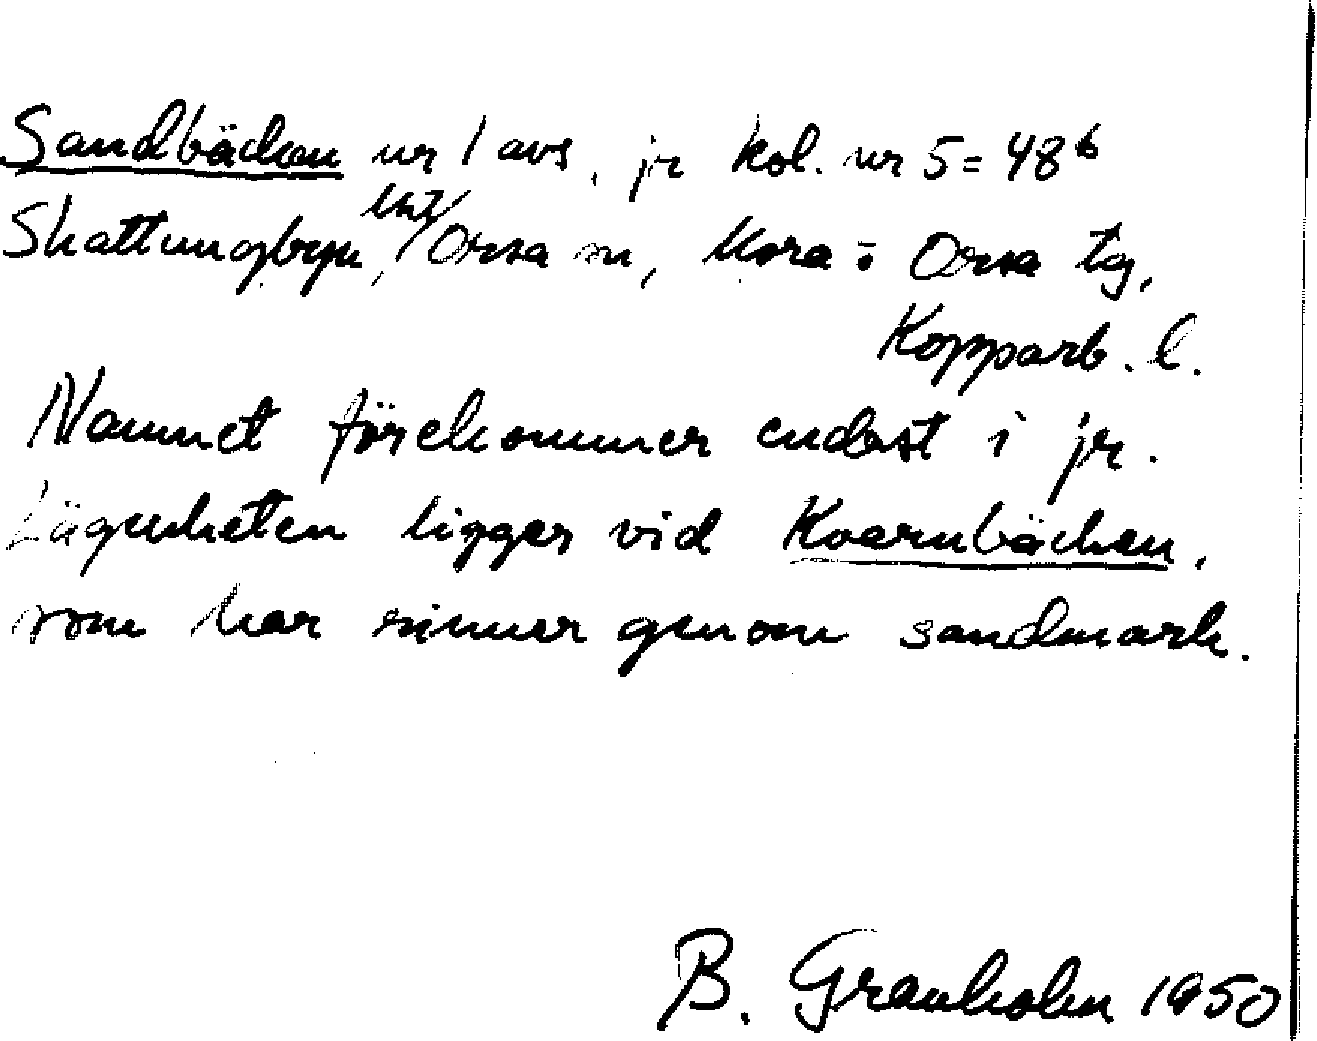 Sandbäcken nr 1 avs, jr kol. nr 5 = 48 b
Skattungbyn, Orsa sn, Mora o Orsa tg,
Kopparb. l.
Namnet förekommer endast i jr.
Lägenheten ligger vid Kvarnbäcken,
som här rinner genom sandmark.
B. Granholm 1950